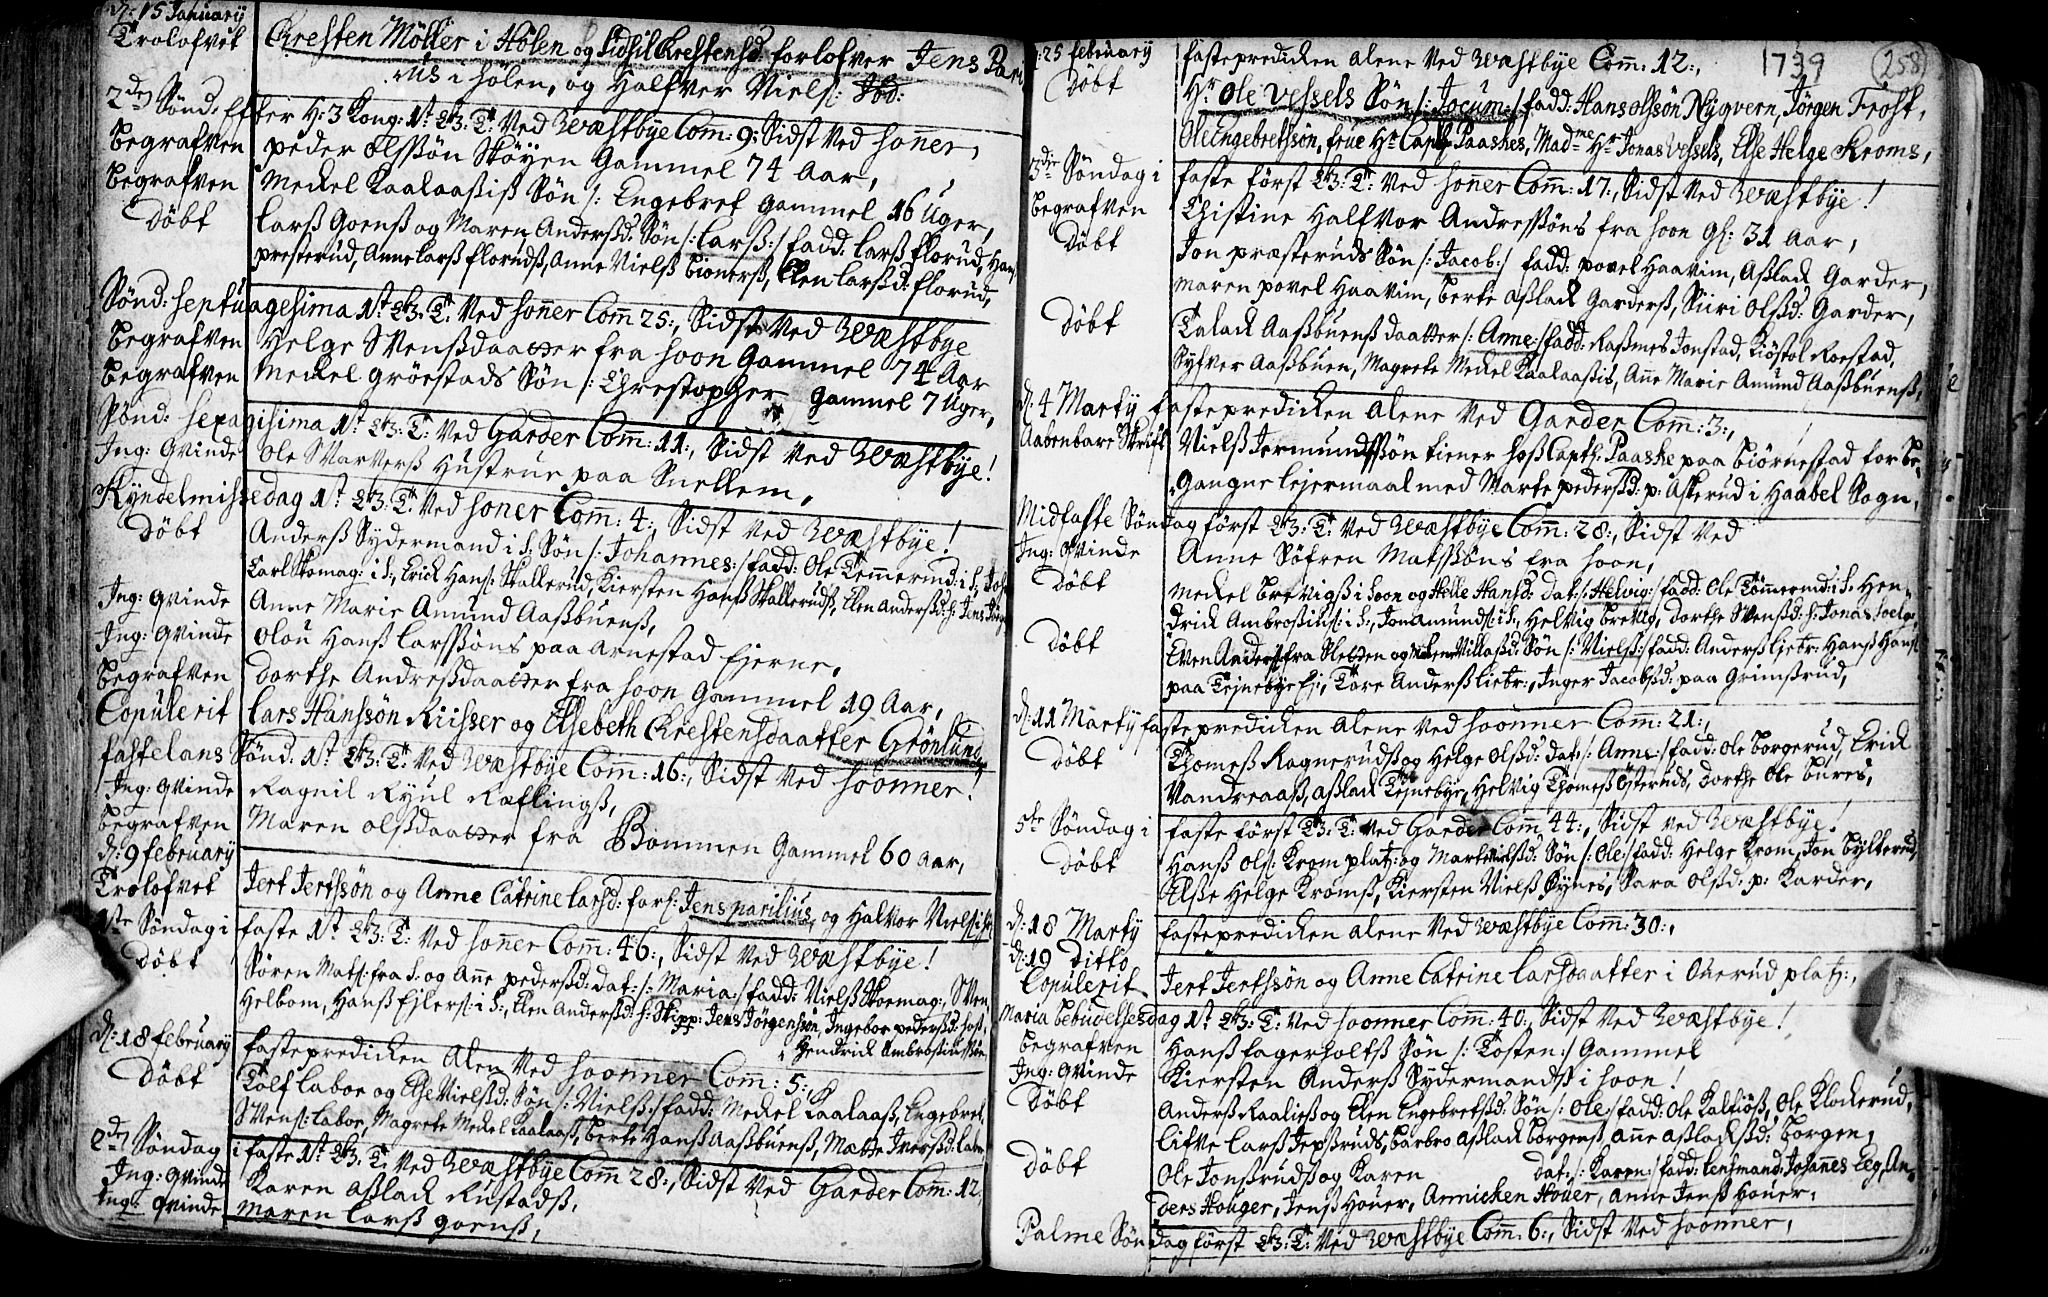 d: 15 January
Trolofvet Kresten Möller i Hölen og Sidsil Krestensd: forlofver Jens Par
ius i Holen, og Halfver Niels:
2den Sönd: Efter H: 3 Kong: 1st Ved Wæstbye Com: 9: Sidst Ved Honer,
Begrafven peder Olssön Sköyen Gammel 74 Aar,
Begrafven Meckel Kaalaasis Sön /: Engebret Gammel 16 Uger,
Döbt Larss Goenss og Maren Anderssd: Sön /: Larss:/ fadd: Larss Florud, Hans
presterud, Anne Larss Florudss, Anne Nielss Bionerss, Elen Larssd: Florud,
Sönd: Septuagesima 1st Ved Honner Com 25:, Sidst Ved Wæstbye
Begrafven Helge Svenssdaatter fra Hoon Gammel 74 Aar
Begrafven Meckel Gröestads Sön /: Chrestopher Gammel 7 Uger,
Sönd: Sexagisima 1st Ved Garder Com: 11:, Sidst Ved Wæstbye!
Ing: Qvinde Ole Svarverss Hustrue paa Snellem,
Kyndelmissedag 1st Ved Honer Com: 4:, Sidst Ved Wæstbye!
Döbt Anderss Sydermand i S: Sön /: Johannes:/ fadd: Ole Temmerm: i S:
Carl Skomag: i S:, Erick Hans: Skallerud, Kiersten Hanss Skallerudss, Elen Anderssd: S: Jens Jörg
Ing: Qvinde Anne Marie Amund Aassbuenss,
Ing: Qvinde Olou Hanss Larssöns paa Arnestad Ejerne,
Begrafven Dorthe Andressdaatter fra Hoon Gammel 19 Aar,
Copulerit Lars Hanssön Riisser og Elsebeth Krestensdaatter Grönlund
Fastelans Sönd: 1st Ved Wæstbye Com: 16:, Sidst Ved Hoonner!
Ing: Qvinde Ragnil Ryul Ræflingss,
Begrafven Maren Olssdaatter fra Bommen Gammel 60 Aar,
d: 9 February
Trolofvet Jert Jertssön og Anne Catrine Larsd: forl: Jens parilius og Halvor Niels: i H:
1ste Söndag i Faste 1st Ved Honner Com: 46:, Sidst Ved Wæstbye!
Döbt Sören Mats: fra S: og Ane pederssd: dat: /: Maria:/ fadd: Nielss Skoemag:, Sven
Helbom, Hanss Ejlers: i S:, Elen Anderssd: S: Skipp: Jens Jörgenssön, Ingebor pederssd: hoss
Hendrick Ambrosiussön
d: 18 February Fastepredicken Alen Ved Hoonner Com: 5:,
Döbt Tolf Labor og Else Nielssd: Sön /: Nielss:/ fadd: Meckel Kaalaass, Engebret
Svens: Labor, Magrete Meckel Kaalaass, Berte Hanss Aassbuenss, Mætte Iverssd: Labor
2den Söndag i Faste 1st Ved Wæstbye Com 28:, Sidst Ved Garder Com: 12
Ing: Qvinde Karen Asslack Rustadss,
Ing: Qvinde Maren Larss Goenss,
1739 258
d: 25 February Fastepredicken Alene Ved Wæstbye Com: 12:,
Döbt Hr Ole Vessels Sön /: Jocum:/ fadd: Hans Olssön Nygvern, Jörgen Frost,
Ole Engebretssön, frue Hr Capt: Paaskes, Madme Hr Jonas Vessels, Else Helge Kroms,
3die Söndag i Faste först Ved Honner Com: 17:, Sidst Ved Wæstbye!
Begrafven Christine Halfvor Andressöns fra Hoon Gl: 31 Aar,
Döbt Jon præsteruds Sön /: Jacob:/ fadd: povel Haavim, Asslack Garder,
Maren povel Haavim, Berte Asslack Garderss, Siiri Olssd: Garder,
Döbt Talack Aassbuenss Daatter /: Anne:/ fadd: Rassmes Jonstad, Kiöstol Roestad,
Syfver Aassbuen, Magrete Meckel Kaalaasis, Ane Marie Amund Aassbuenss,
d: 4 Marty Fastepredicken Alene Ved Garder Com: 3:,
Aabenbare Skrift Nielss Jermundssön tiener hoss Capth: Paaske paa Biörnestad for Be-
Gangne Lejermaal med Marte pederssd: p: Askerud i Haabel Sogn,
Midfaste Söndag först Ved Wæstbye Com: 28:, Sidst Ved
Ing: Qvinde Anne Söfren Matssöns fra Hoon,
Döbt Meckel Brevigss i Soon og Helle Hansd: dat: /: Helvig:/ fadd: Ole Tömmerm: i S: Hen-
drick Ambrosius: i S:, Jon Amunds: i S:, Helvig Brevig, Dorthe Svenssd: S: Jonas Soelg
Döbt Even Anders: fra Sletten og Villassd: Sön /: Nielss:/ fadd: Anderss Liebr: Hanss Hans:
paa Tejnebye Ej:, Tore Anderss Liebr:, Inger Jacobssd: paa Grimssrud,
d: 11 Marty Fastepredicken Alene Ved Hoonner Com: 21:,
Döbt Thomess Ragnerudss og Helge Olssd: dat: /: Anne:/ fadd: Ole Borgerud, Erick
Vandreaass, Asslack Tejnebye, Helvig Thomess Österuds, Dorthe Ole Bures,
5te Söndag i Faste först Ved Garder Com: 44:, Sidst Ved Wæstbye!
Döbt Hanss Ols: Krom platz: og Marte Nielssd: Sön /: Ole:/ fadd: Helge Krom, Jon Bylterud,
Elsse Helge Kromss, Kiersten Nielss Synes, Sara Olssd: p: Karder,
d: 18 Marty Fastepredicken Alene Ved Wæstbye Com: 30:,
d: 19 Ditto
Copulerit Jert Jertssön og Anne Catrine Larssdaatter i Ouerud platz:,
Maria Bebudelsesdag 1st Ved Hoonner Com: 40:, Sidst Ved Wæstbye!
Begrafven Hanss Fagerholtss Sön /: Tosten:/ Gammel
Ing: Qvinde Kiersten Anderss Sydermandss i Hoon!
Döbt Anderss Raaliess og Elen Engebretssd: Sön /: Ole:/ fadd: Ole Kaltiöss, Ole Klockerud,
Lifve Larss Jepssruds, Barbro Asslack Borgenss, Ane Asslackssd: Borgen,
Döbt Ole Jonssrudss og Karen dat: /: Karen:/ fadd: Lensmand: Johannes Eeg, An-
ders Houger, Jenss Houer, Annicken Houer, Anne Jenss Houer,
Palme Söndag först Ved Wæstbye Com: 6:, Sidst Ved Hoonner,